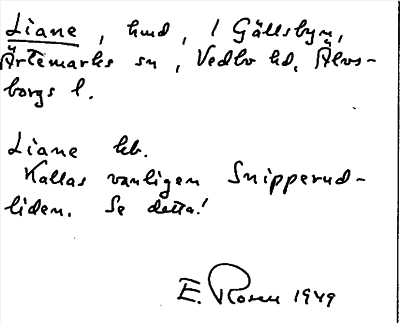 Liane, hmd, i Gällsbyn,
Ärtemarks sn, Vedbo hd, Älvs-
borgs l.
Liane hb.
Kallas vanligen Snipperud-
liden. Se detta!
E. Rosen 1949